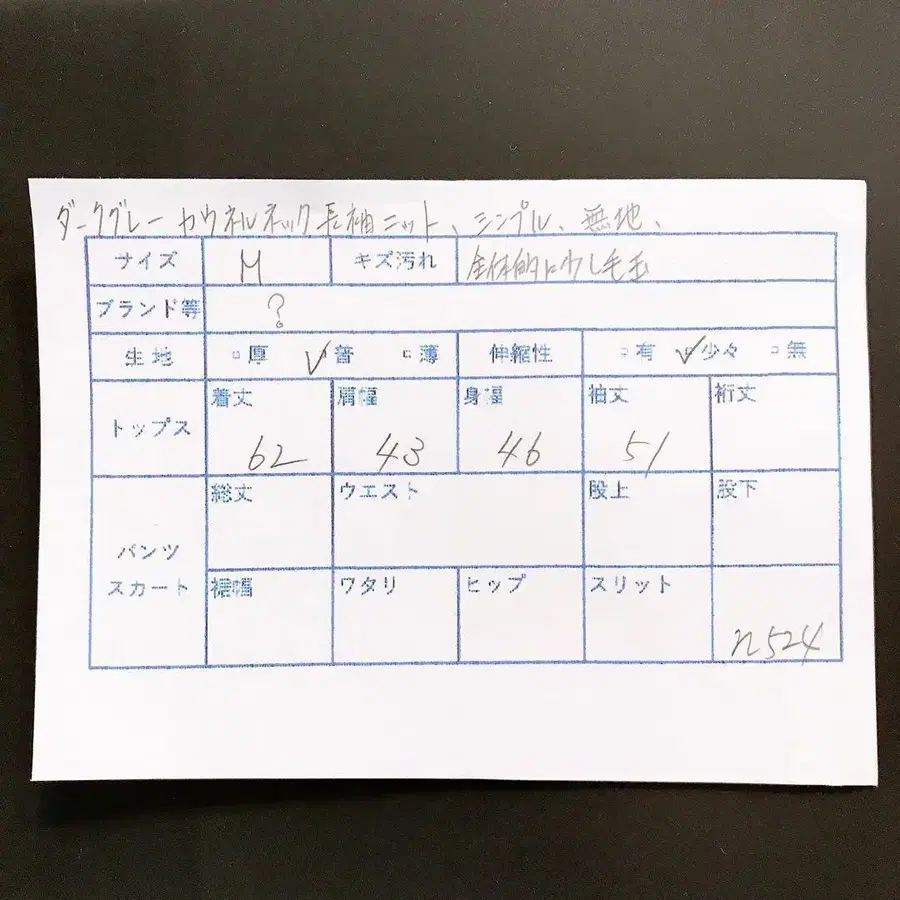 ダークグレー カウネルネック長袖ニット、シンプル、無地、
サイズ M キズ汚れ 全体的に少し毛玉
ブランド等 ?
生地 □厚 ✓普 □薄 伸縮性 □有 ✓少々 □無
トップス 着丈 62 肩幅 43 身幅 46 袖丈 51 裄丈
パンツ スカート 総丈 ウエスト 股上 股下
裾幅 ワタリ ヒップ スリット n524